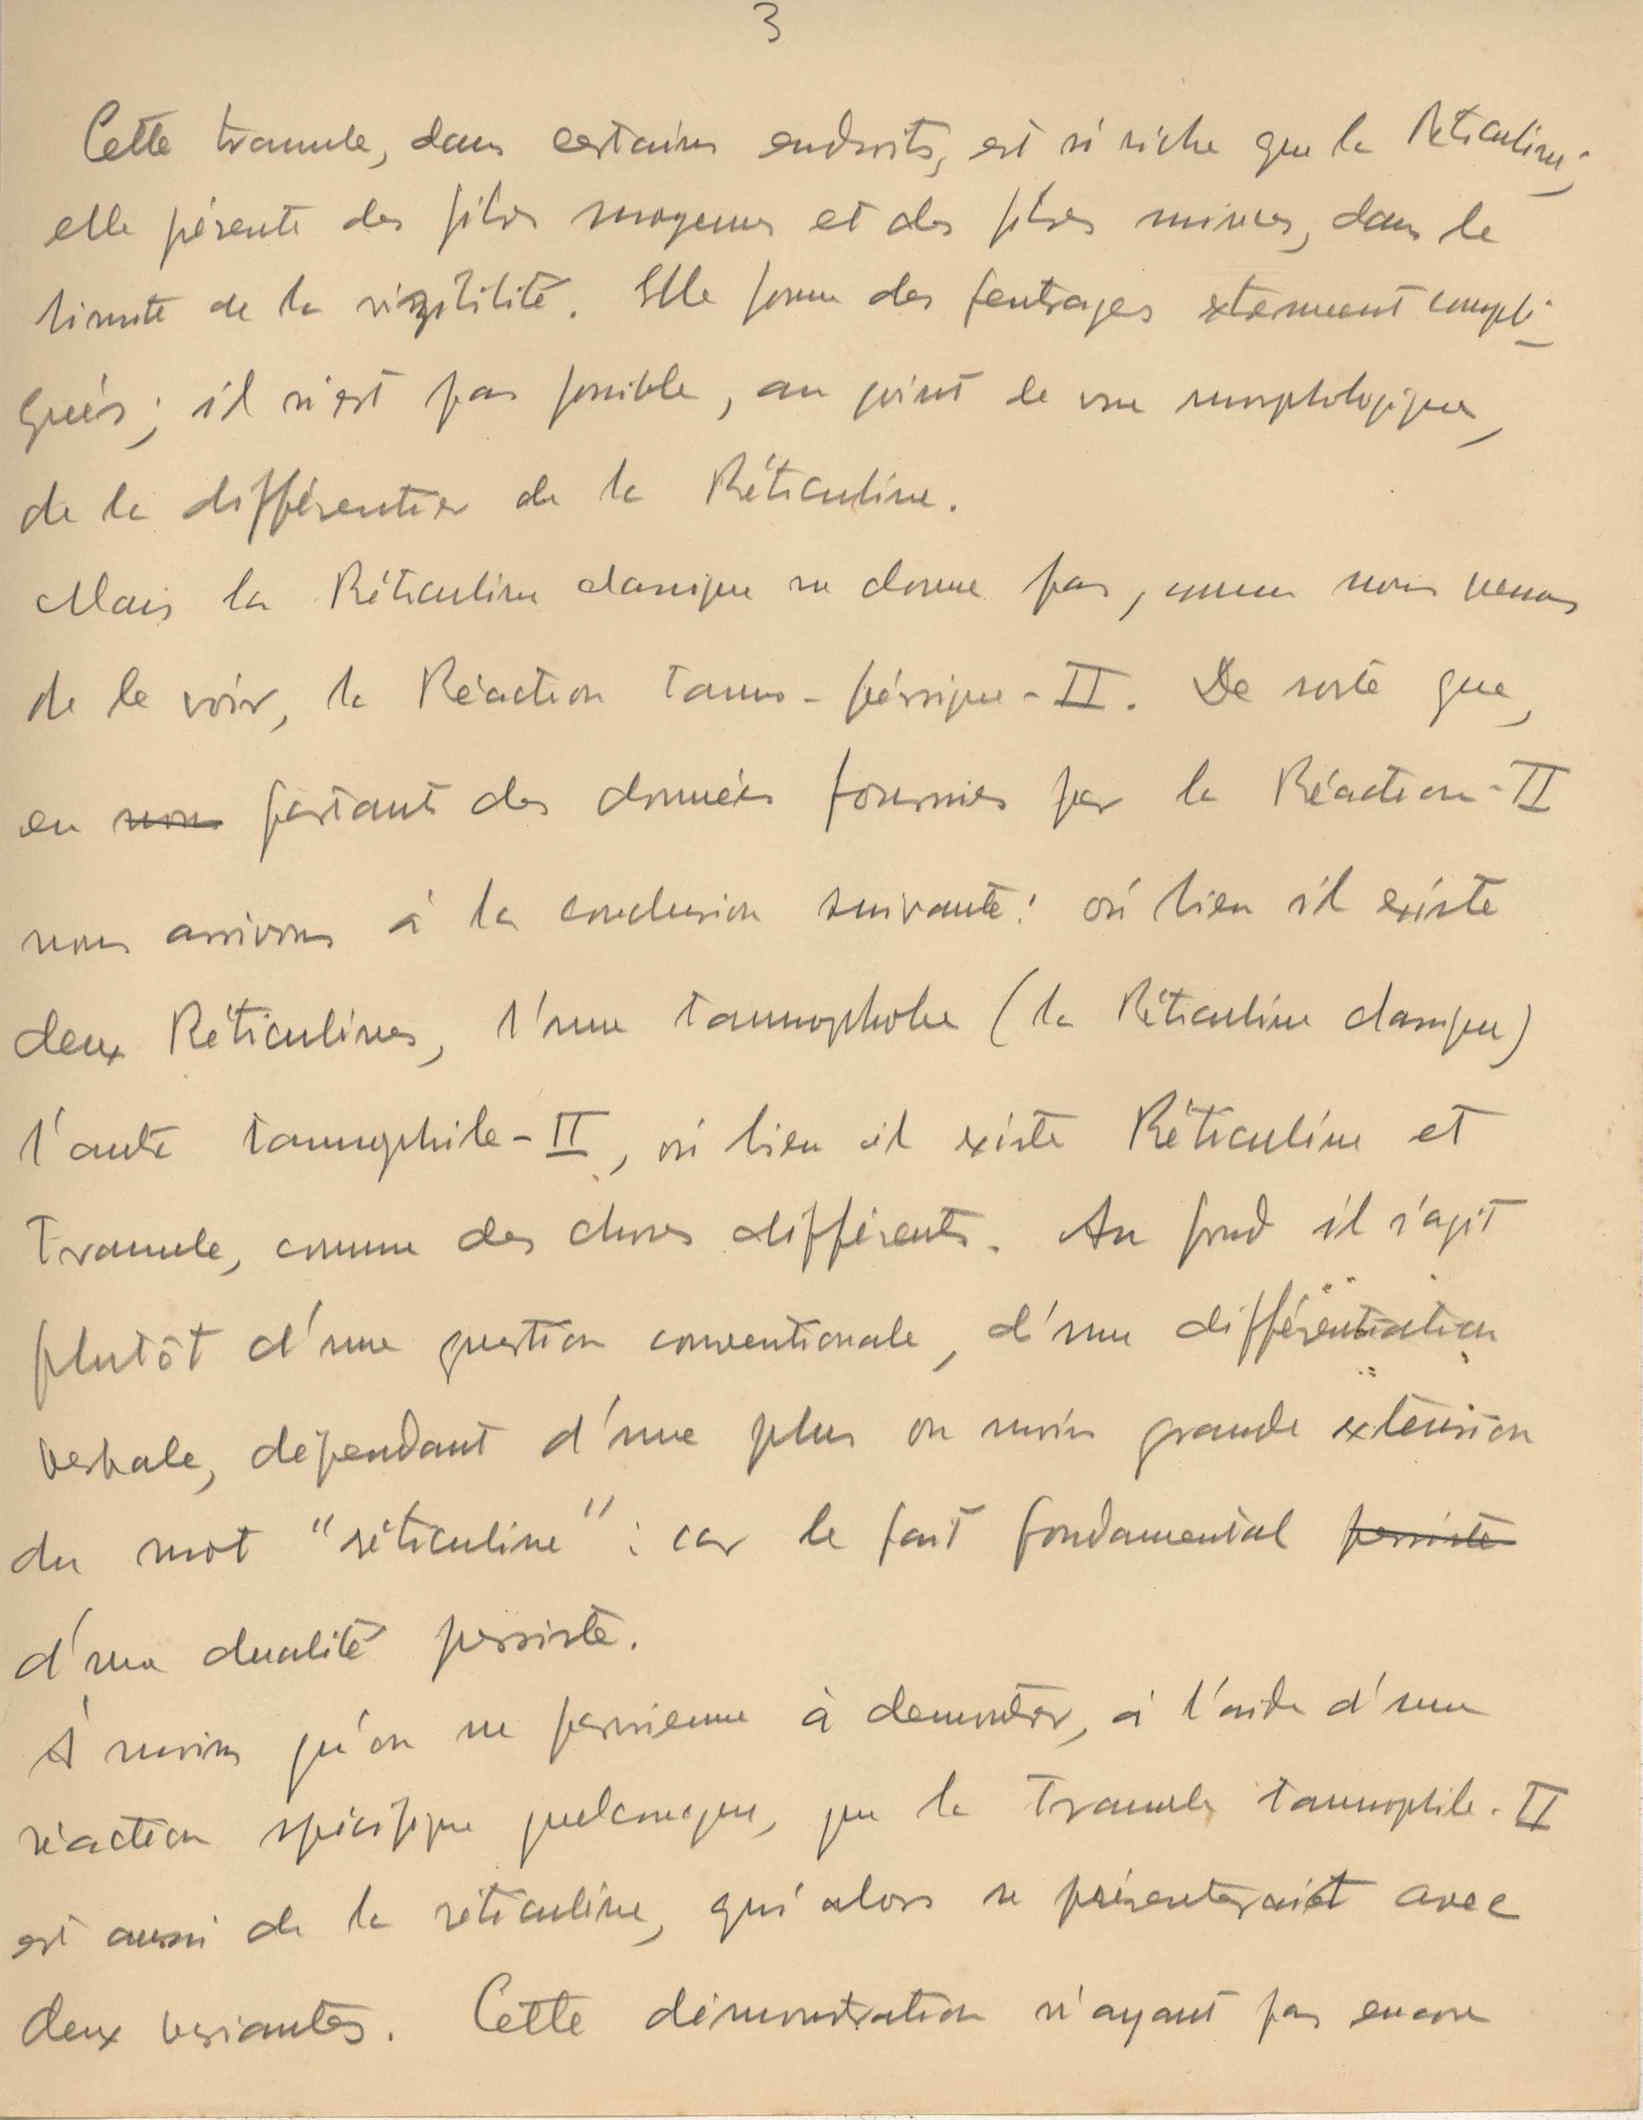 3
Cette tramule, dans certains endroits, est si riche que la Réticuline;
elle présente des fibres moyennes et des fibres minces, dans la
limite de la visibilité. Elle forme des feutrages extremement compli-
qués; il n'est pas possible, au point de vue morphologique,
de la différentier de la Réticuline.
Mais la Réticuline classique ne donne pas, comme nous venons
de le voir, la Réaction tanno-ferrique-II. De sorte que,
en partant des données fournies par la Réaction-II
nous arrivons à la conclusion suivante: où bien il existe
deux Réticulines, l'une tannophobe (la Réticuline classique)
l'autre tannophile-II, où bien il existe Réticuline et
Tramule, comme des choses différents. Au fond il s'agit
plutôt d'une question conventionale, d'une différentiation
verbale, dépendant d'une plus ou moins grande extension
du mot "réticuline": car le fait fondamental persiste
d'una dualité persiste.
À moins qu'on ne parvienne à demontrer, à l'aide d'une
réaction spécifique quelconque, que la Tramule tannophile-II
est aussi de la réticuline, qui alors se présenterait avec
deux variantes. Cette démonstration n'ayant pas encore